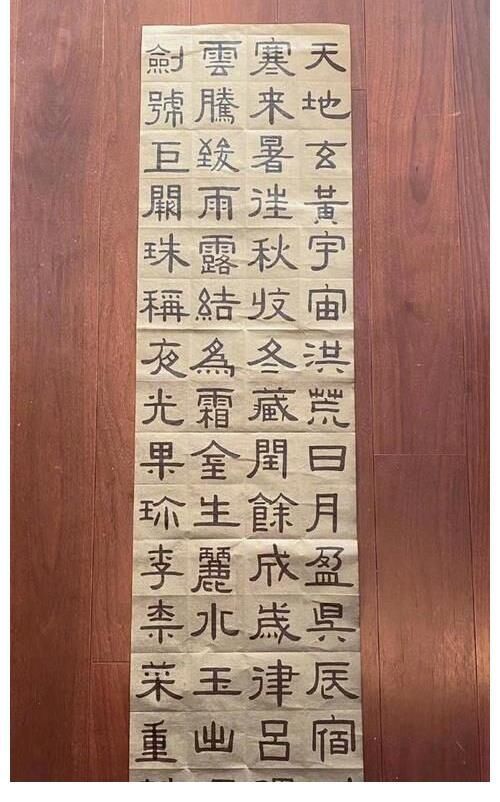 天地玄黃宇宙洪荒日月盈昃辰宿
寒来暑往秋收冬藏閏餘成歲律呂
雲騰致雨露結為霜金生麗水玉出
劍號巨闕珠稱夜光果珎李柰菜重